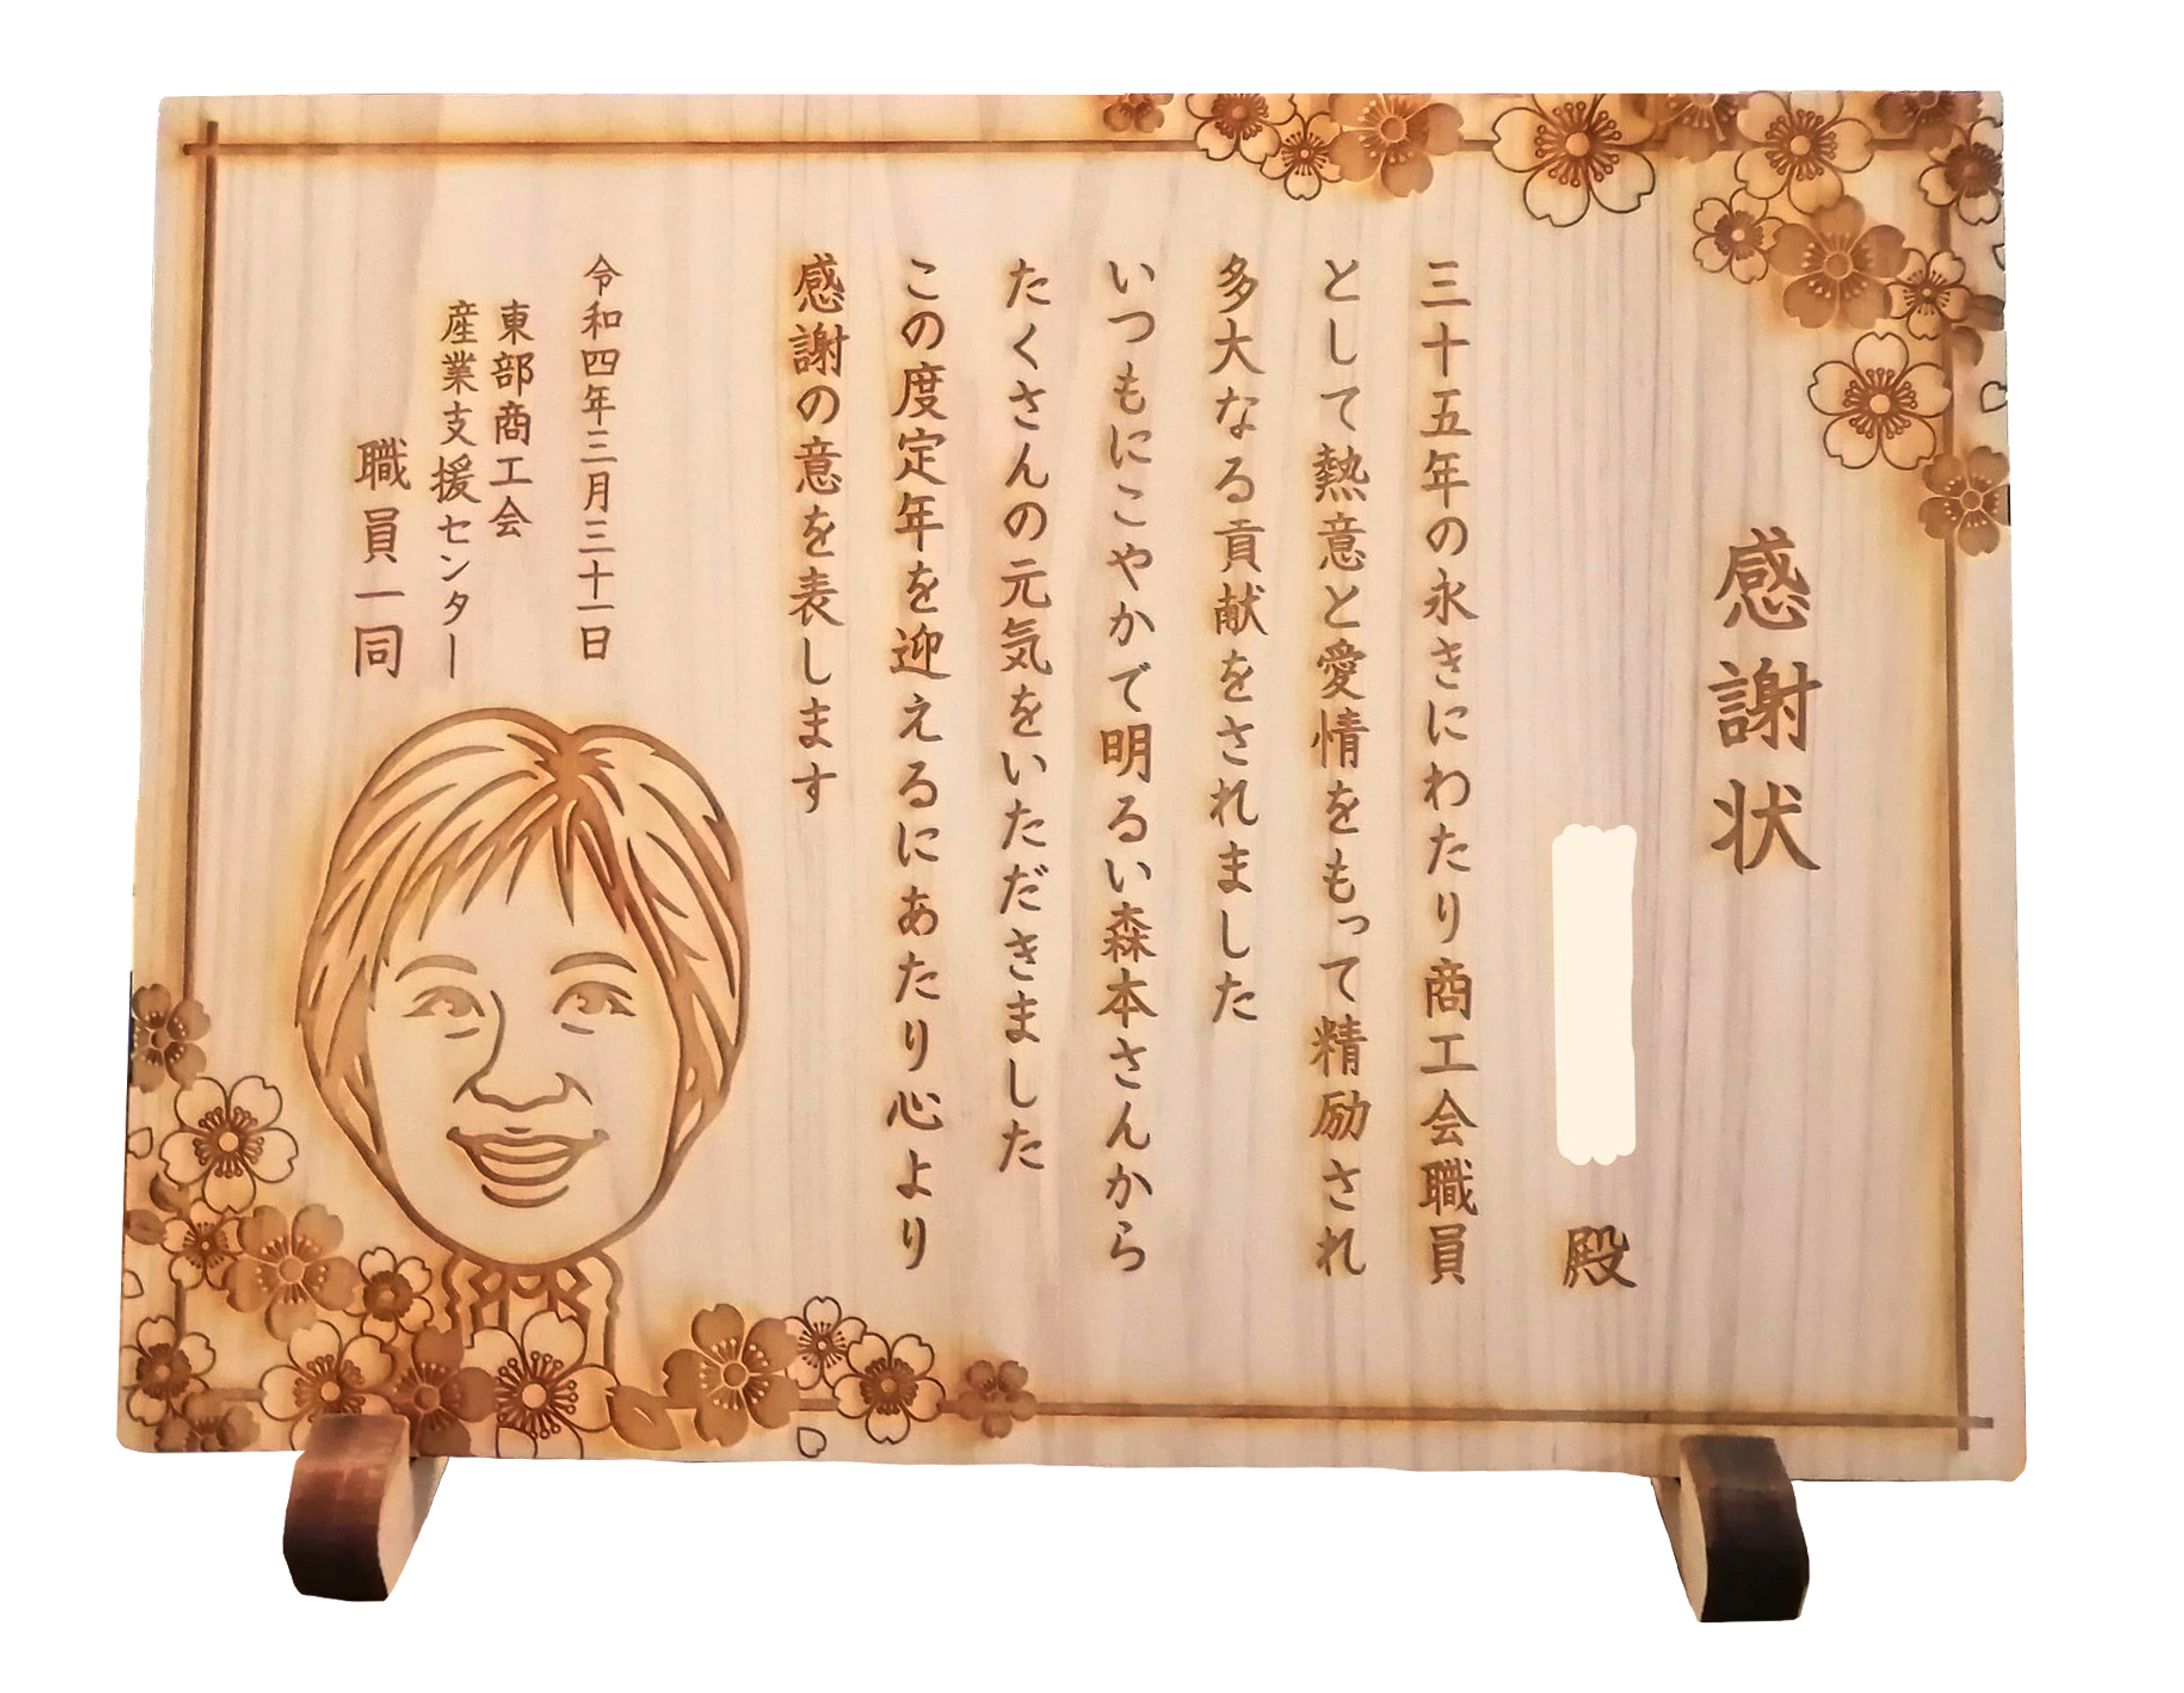 感謝状
殿
三十五年の永きにわたり商工会職員
として熱意と愛情をもって精励され
多大なる貢献をされました
いつもにこやかで明るい森本さんから
たくさんの元気をいただきました
この度定年を迎えるにあたり心より
感謝の意を表します
令和四年三月三十一日
東部商工会
産業支援センター
職員一同